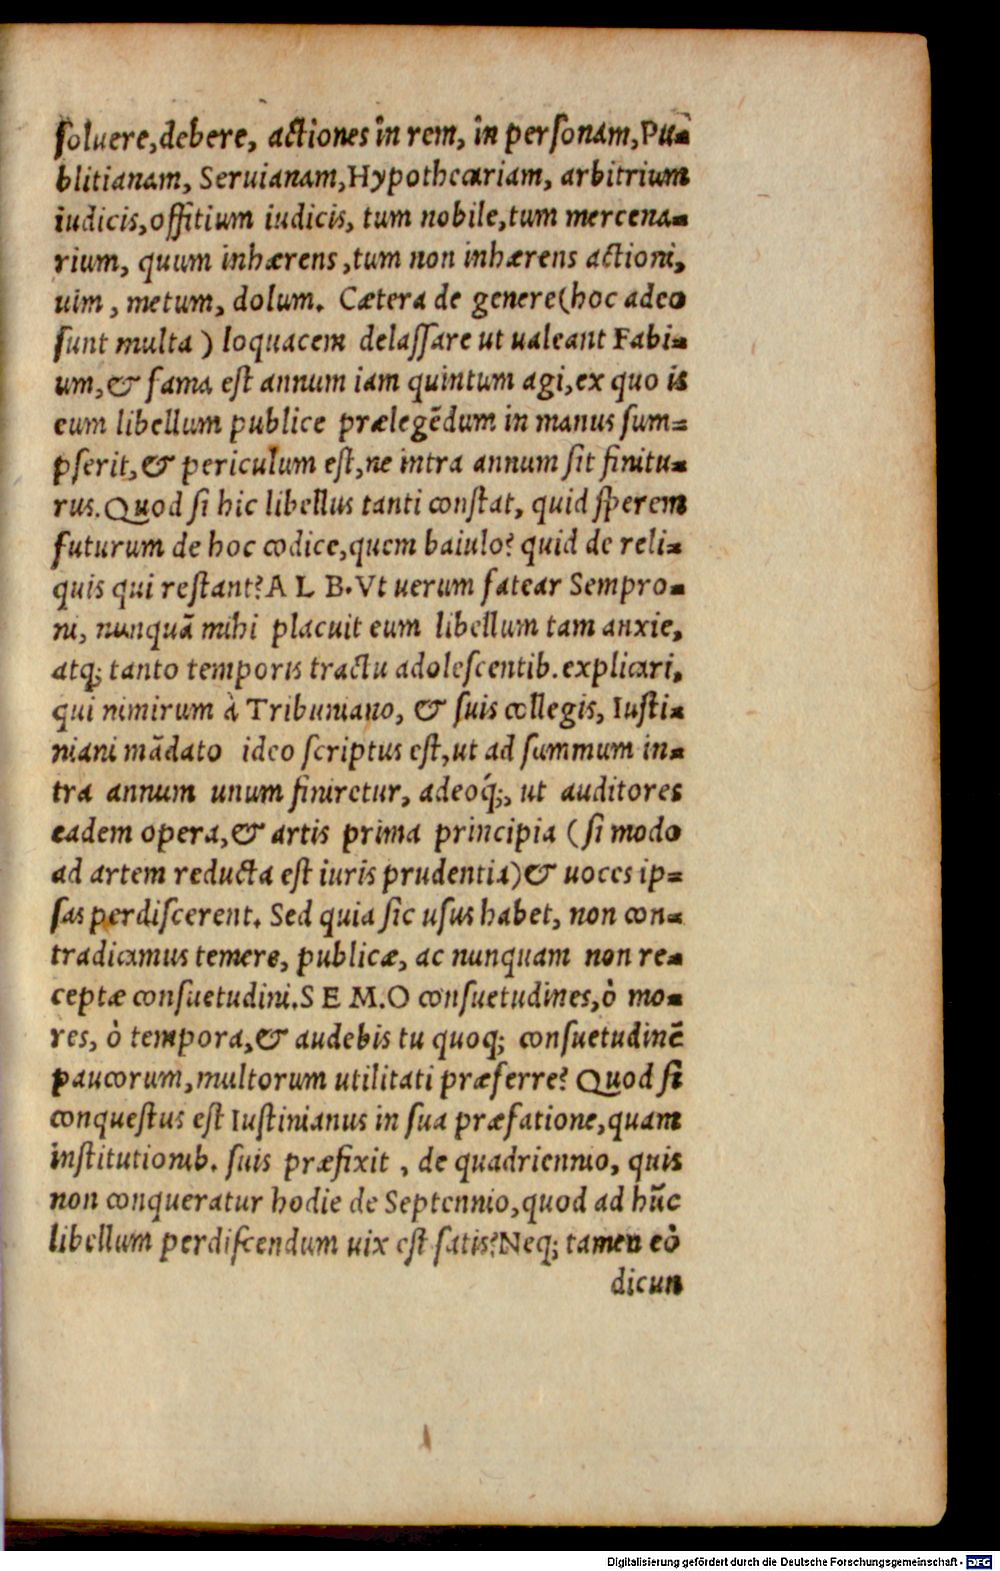 soluere,debere, actiones in rem, in personam,Pu-
blitianam, Seruianam,Hypothecariam, arbitrium
iudicis,offitium iudicis, tum nobile,tum mercena-
rium, quum inhærens ,tum non inhærens actioni,
uim , metum, dolum. Cætera de genere(hoc adeo
sunt multa ) loquacem delassare ut ualeant Fabi-
um,& fama est annum iam quintum agi,ex quo is
eum libellum publice prælegēdum in manus sum-
pserit,& periculum est,ne intra annum sit finitu-
rus. Quod si hic libellus tanti constat, quid sperem
futurum de hoc codice,quem baiulo? quid de reli-
quis qui restant? A L B. Vt uerum fatear Sempro-
ni, nunquā mihi placuit eum libellum tam anxie,
atq; tanto temporis tractu adolescentib. explicari,
qui nimirum à Tribuniano, & suis collegis, Iusti-
niani mādato ideo scriptus est,ut ad summum in-
tra annum unum finiretur, adeoq́;, ut auditores
eadem opera,& artis prima principia ( si modo
ad artem reducta est iuris prudentia)& uoces ip-
sas perdiscerent. Sed quia sic usus habet, non con-
tradicamus temere, publicæ, ac nunquam non re-
ceptæ consuetudini. S E M. O consuetudines,ò mo-
res, ò tempora,& audebis tu quoq; consuetudinē
paucorum,multorum utilitati præferre? Quod si
conquestus est Iustinianus in sua præfatione,quam
institutionib. suis præfixit , de quadriennio, quis
non conqueratur hodie de Septennio,quod ad hūc
libellum perdiscendum uix est satis? Neq; tamen eò
dicun
Digitalisierung gefördert durch die Deutsche Forschungsgemeinschaft - DFG